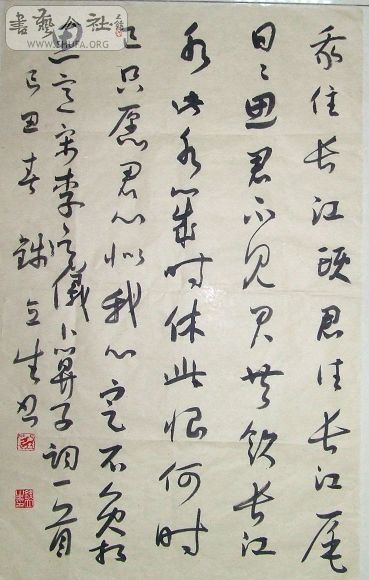 書藝公社
WWW.SHUFA.ORG
我住长江頭君住长江尾
日〻思君不见君共饮长江
水此水幾时休此恨何时
已只愿君心似我心定不负相
思意宋李之儀卜算子词一首
己丑春 立生书